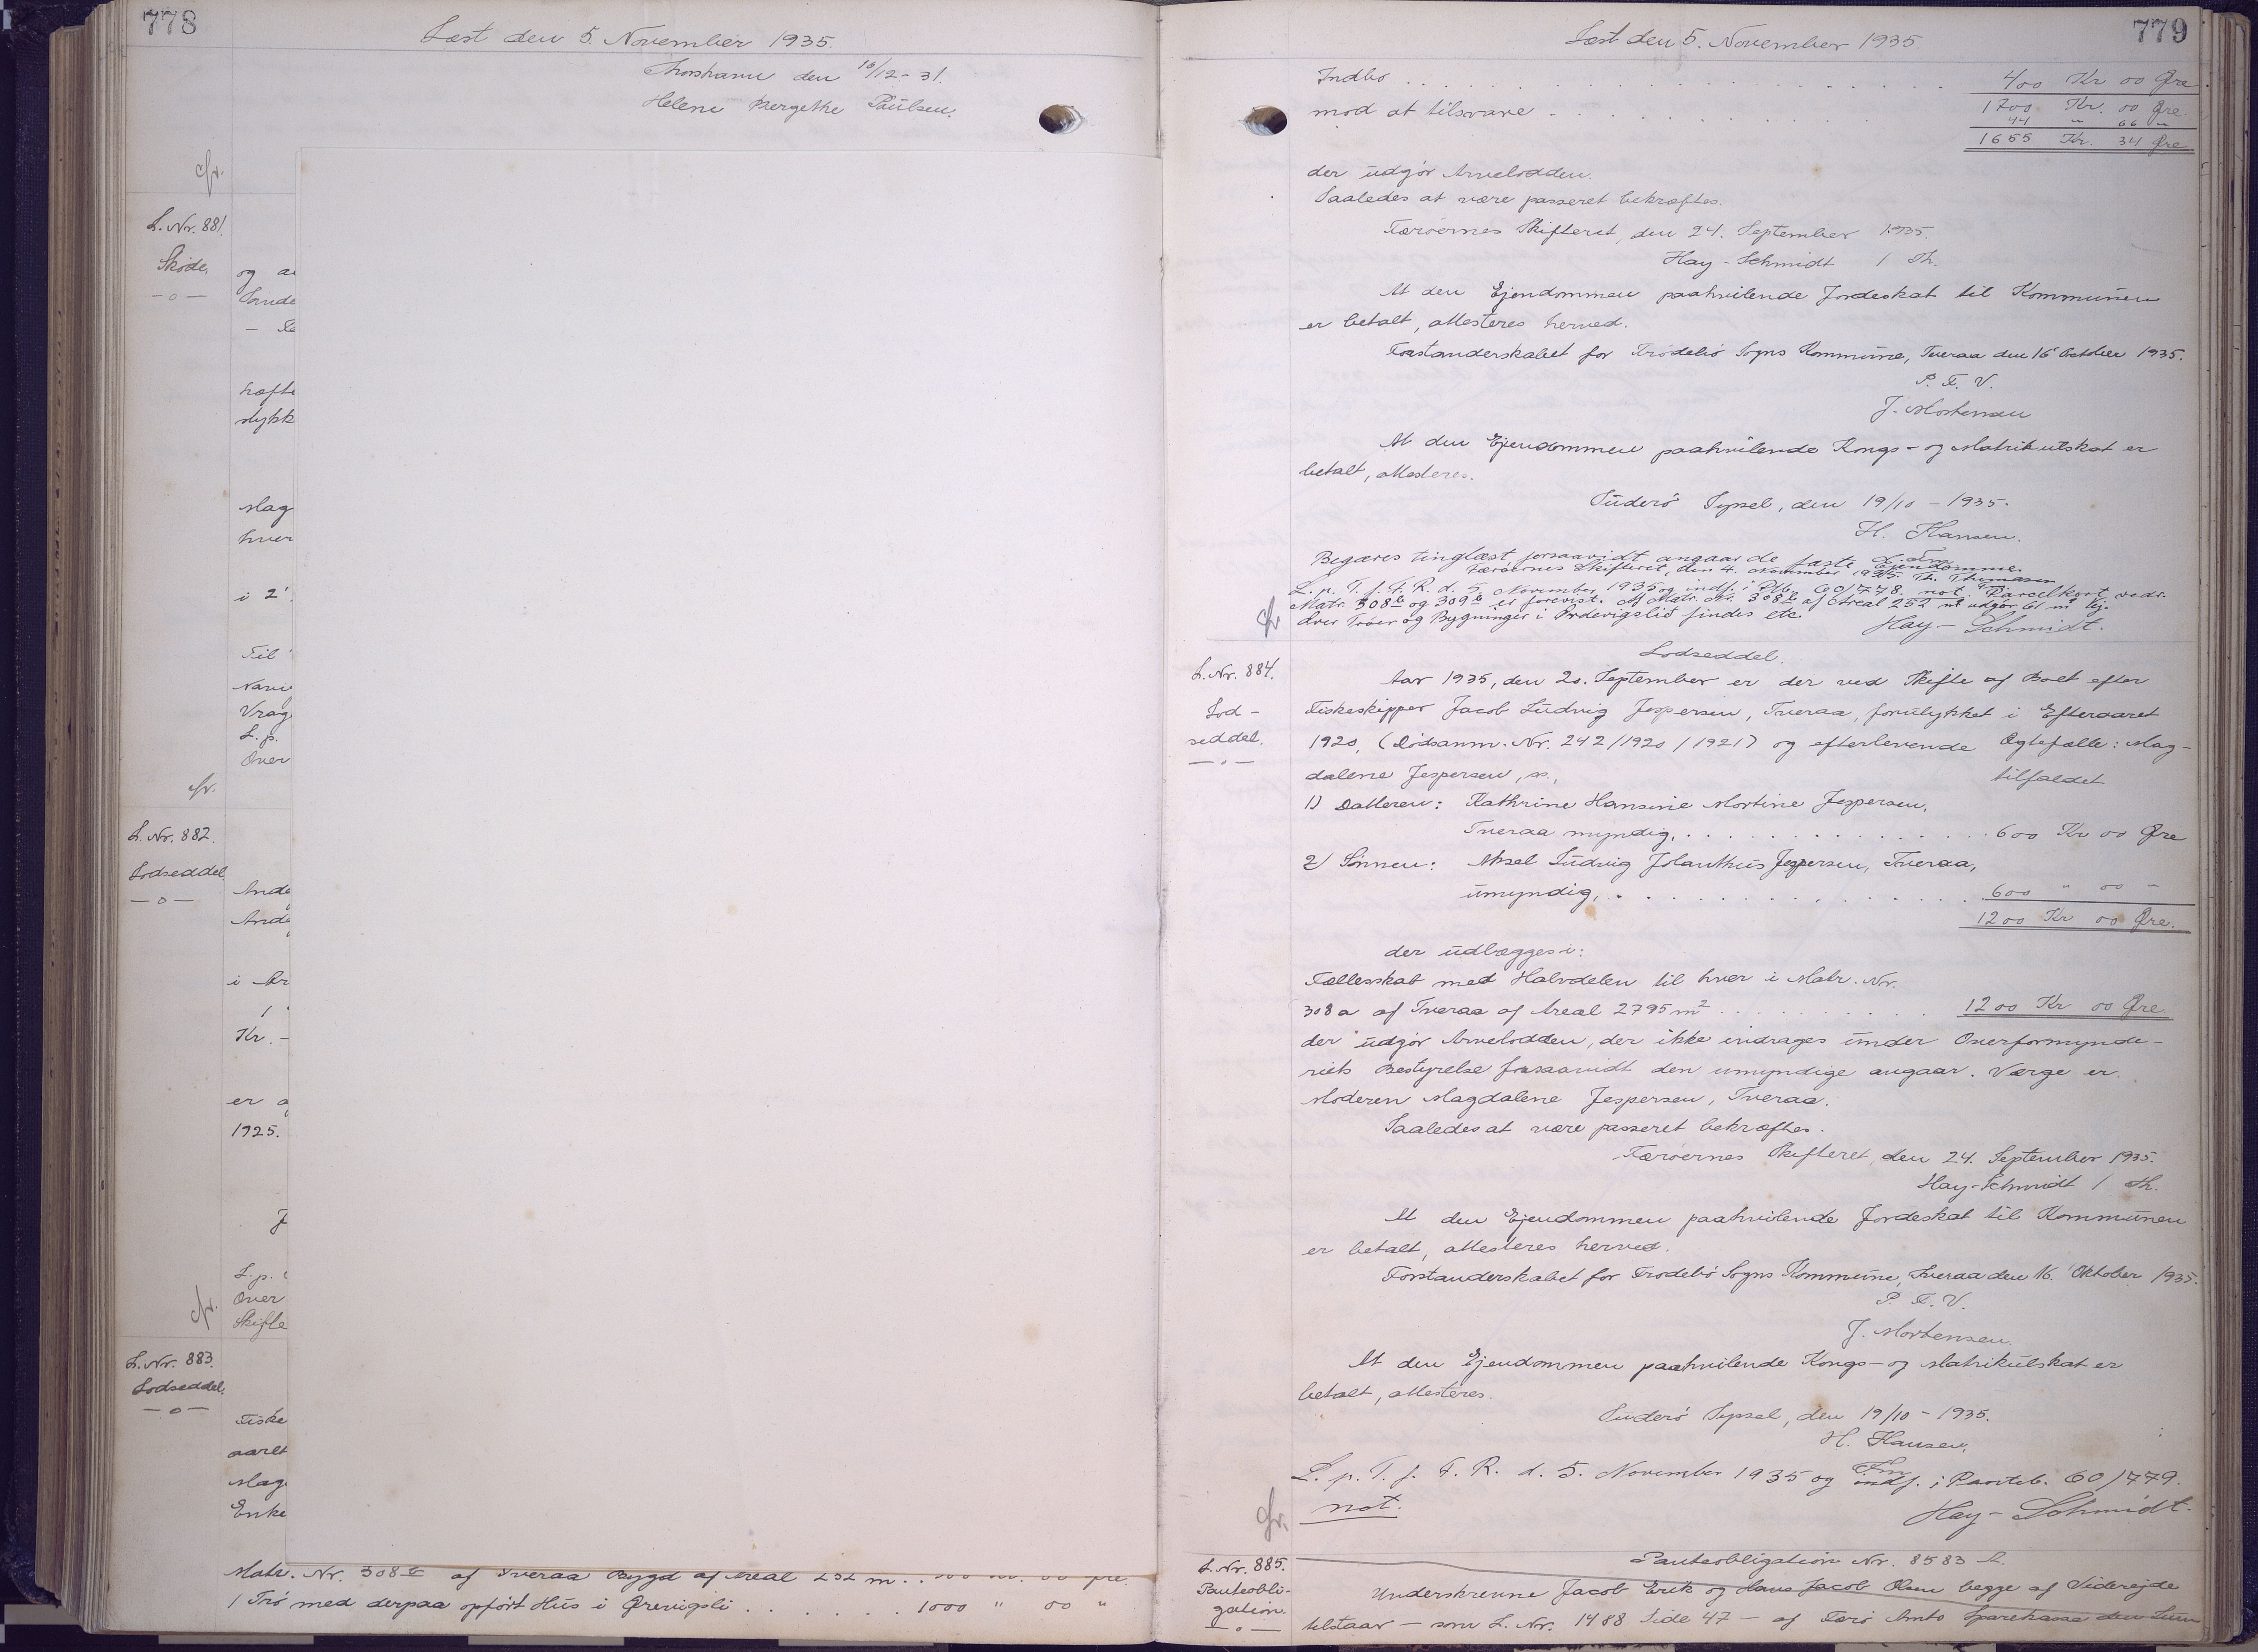 778
Læst den 5. November 1935.
Thorshavn den 10/12 - 31.
Helene Bergethe Paulsen.
cfr.
L. Nr. 881.
Skøde.
— o —
og
hæfte
stykk
Mag
hver
i 2
Til
Navn
Vrag
L. p.
Over
cfr.
L. Nr. 882.
Lodseddel
— o —
Ande
Ande
i Ar
1
Kr. -
er
1925.
L. p.
Over
Skifte
cfr.
L. Nr. 883.
Lodseddel.
— o —
Fiske
aaret
Mag
Enke
Matr. Nr. 308 b af Tveraa Bygd af Areal 252 m
1 Trø med derpaa opført Hus i Ørevigsli . . . . . . 1000 " 00 "
779
Læst den 5. November 1935.
Indbo . . . . . . 400 Kr 00 Øre
1700 Kr. 00 Øre
mod at tilsvare . . . . . . 44 " 66 "
1655 Kr. 34 Øre
der udgør Arvelodden.
Saaledes at være passeret bekræftes.
Færøernes Skifteret, den 24. September 1935.
Hay-Schmidt / Th.
At den Ejendommen paahvilende Jordeskat til Kommunen
er betalt, attesteres herved.
Forstanderskabet for Frodebø Sogns Kommune, Tveraa den 16 October 1935.
P. F. V.
J. Mortensen
At den Ejendommen paahvilende Kongs- og Matrikulskat er
betalt, attesteres.
Suderø Syssel, den 19/10 - 1935.
H. Hansen.
Begæres tinglæst forsaavidt angaar de faste Ejendomme.
Færøernes Skifteret, den 4. November 1935. Th. Thomasen
L. p. T. f. F. R. d. 5. November 1935 og indf. i Ptb. 60/778. not. Parcelkort vedr.
Matr. 308 b og 309 b er forevist. Af Matr. Nr. 308 b af Areal 252 m² udgør 61 m² Vej.
Over Trøer og Bygninger i Ørdevigslid findes etc. Hay-Schmidt.
cfr
L. Nr. 884.
Lod-
seddel.
— o —
Lodseddel.
Aar 1935, den 20. September er der ved Skifte af Boet efter
Fiskeskipper Jacob Ludvig Jespersen, Tveraa, forulykket i Efteraaret
1920, (Dødsanm. Nr. 242/1920/1921) og efterlevende Ægtefælle: Mag-
dalene Jespersen, ss., tilfaldet
1) Datteren: Kathrine Hansine Mortine Jespersen,
Tveraa myndig, . . . . . . 600 Kr 00 Øre
2) Sønnen: Aksel Ludvig Jolanthus Jespersen, Tveraa,
umyndig, . . . . . . 600 " 00 "
1200 Kr 00 Øre.
der udlægges i:
Fællesskab med Halvdelen til hver i Matr. Nr.
308 a af Tveraa af Areal 2795 m² . . . . . . 1200 Kr 00 Øre
der udgør Arvelodden, der ikke inddrages under Overformynde-
riets Bestyrelse forsaavidt den umyndige angaar. Værge er
Moderen Magdalene Jespersen, Tveraa.
Saaledes at være passeret bekræftes.
Færøernes Skifteret, den 24. September 1935.
Hay-Schmidt / Th.
At den Ejendommen paahvilende Jordeskat til Kommunen
er betalt, attesteres herved.
Forstanderskabet for Frodebø Sogns Kommune, Tveraa den 16. Oktober 1935.
P. F. V.
J. Mortensen.
At den Ejendommen paahvilende Kongs- og Matrikulskat er
betalt, attesteres.
Suderø Syssel, den 19/10 - 1935.
H. Hansen.
L. p. T. f. F. R. d. 5. November 1935 og indf. i Panteb. 60/779.
not. Hay-Schmidt.
cfr.
L. Nr. 885.
Panteobli-
gation.
— o —
Panteobligation Nr. 8583 A.
Underskrevne Jacob Erik og Hans Jacob Olsen begge af Siderejde
tilstaar — som L. Nr. 1488 Side 47 — af Færø Amts Sparekasse den Sum